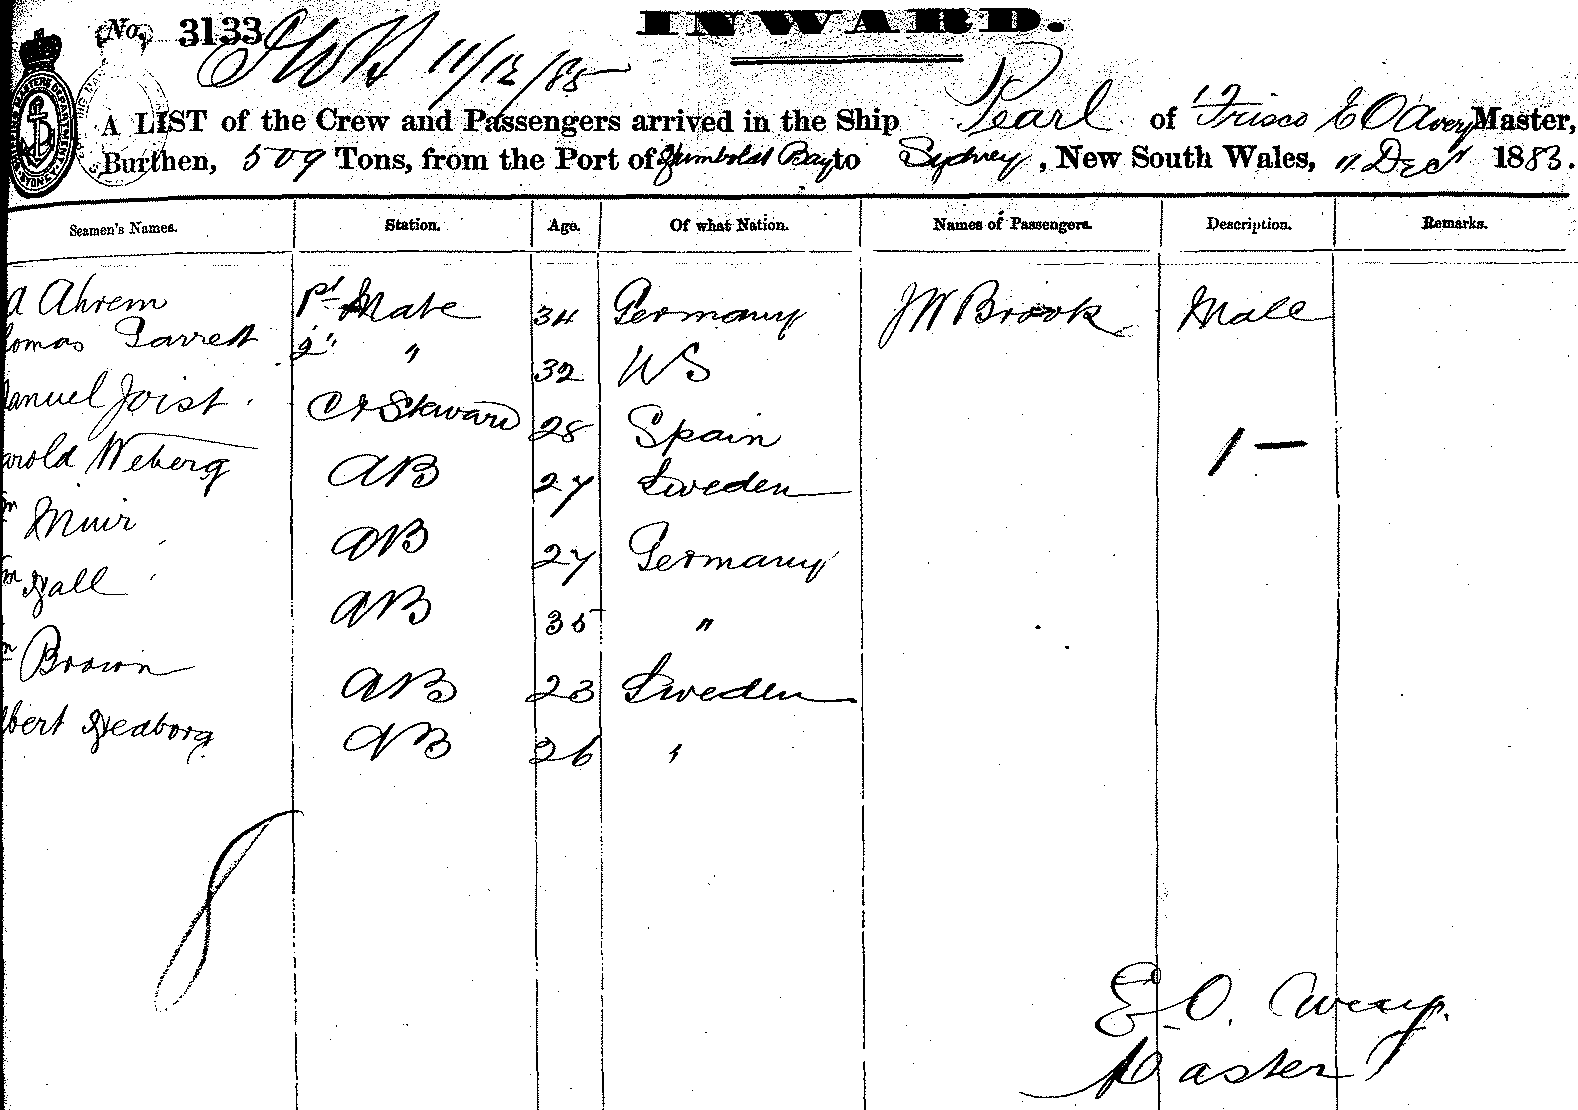 No. 3133
INWARD.
11/12/85
A LIST of the Crew and Passengers arrived in the Ship Pearl of Frisco E O Avery Master,
Burthen, 509 Tons, from the Port of Humboldt Bay to Sydney, New South Wales, 11 Dec 1883.
Seamen's Names. Station. Age. Of what Nation. Names of Passengers. Description. Remarks.
Ahrem 1st Mate 34 Germany J W Brook Male
omas Garrett 2" " 32 US
anuel Joist C & Steward 28 Spain
arold Weberg AB 27 Sweden 1 —
m Muir AB 27 Germany
m Hall AB 35 "
n Brown AB 23 Sweden
lbert Hedborg AB 26 "
8
E. O. Avery.
Master